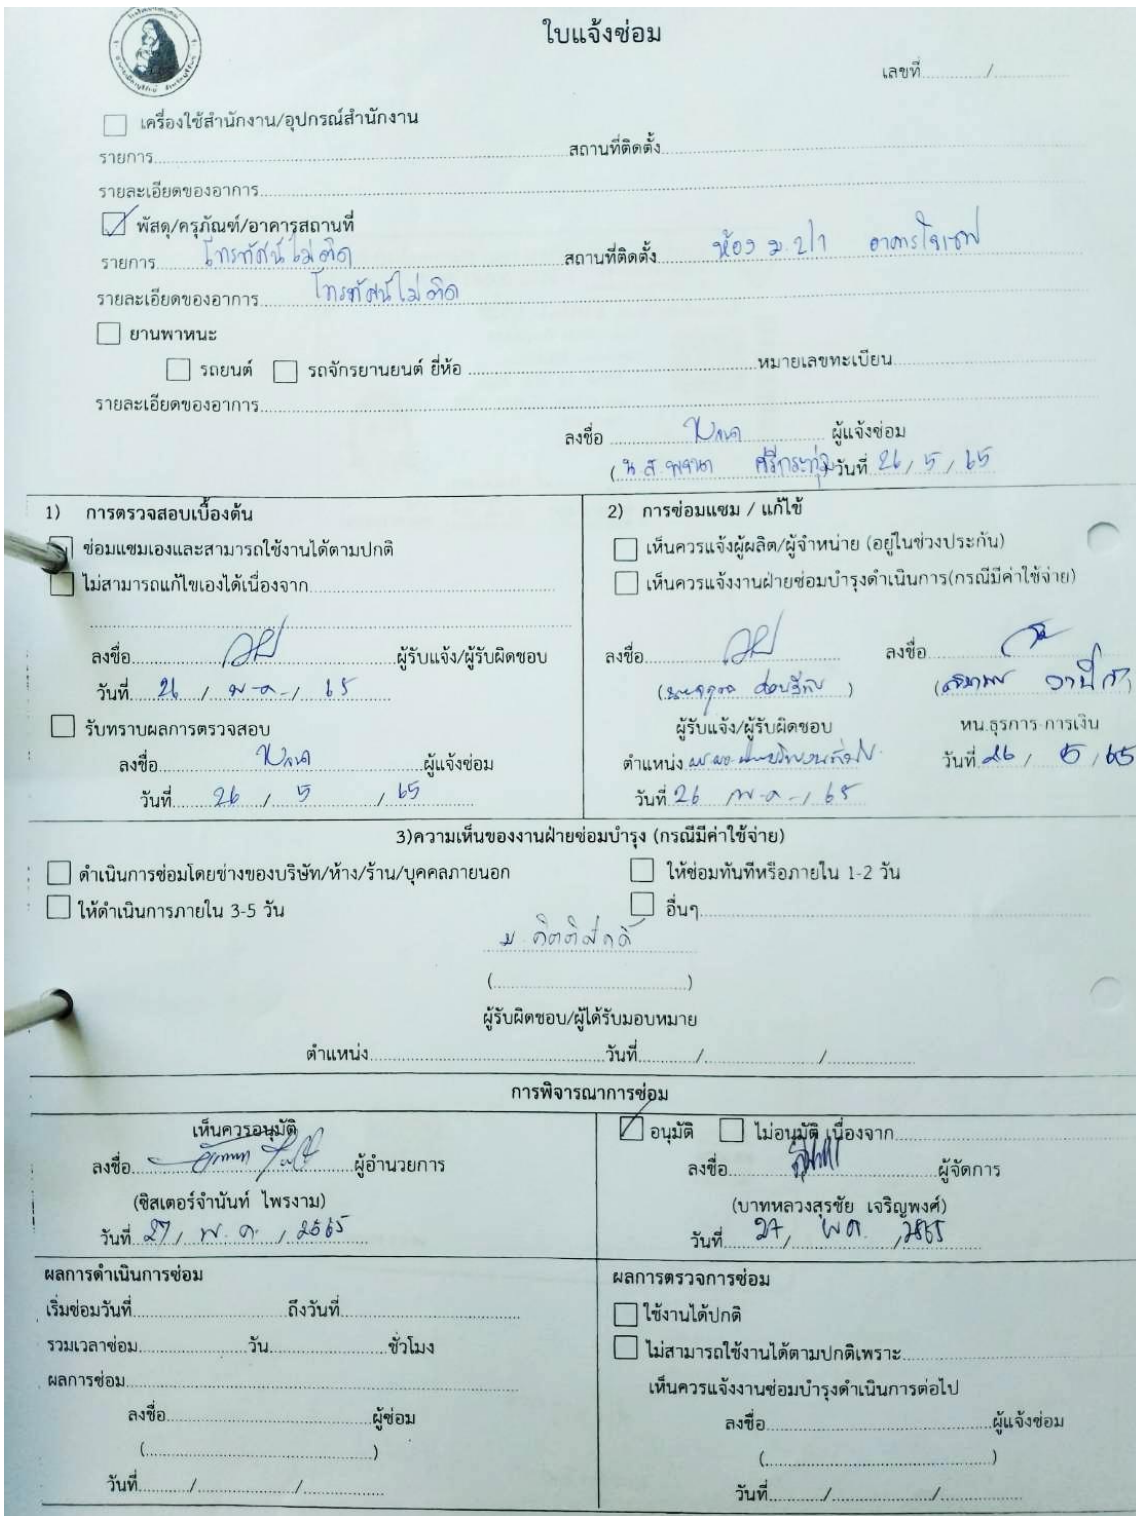 ใบแจ้งซ่อม
เลขที่............/............
เครื่องใช้สำนักงาน/อุปกรณ์สำนักงาน
รายการ............สถานที่ติดตั้ง............
รายละเอียดของอาการ............
พัสดุ/ครุภัณฑ์/อาคารสถานที่
รายการ โทรทัศน์ไม่ติด สถานที่ติดตั้ง ห้อง ม.2/1 อาคาร
รายละเอียดของอาการ โทรทัศน์ไม่ติด
ยานพาหนะ
รถยนต์ รถจักรยานยนต์ ยี่ห้อ ............หมายเลขทะเบียน............
รายละเอียดของอาการ............
ลงชื่อ ............ ผู้แจ้งซ่อม
(น.ส. วันที่ 26/5/65
1) การตรวจสอบเบื้องต้น
ซ่อมแซมเองและสามารถใช้งานได้ตามปกติ
ไม่สามารถแก้ไขเองได้เนื่องจาก............
ลงชื่อ............ผู้รับแจ้ง/ผู้รับผิดชอบ
วันที่ 26 / พ.ค. / 65
รับทราบผลการตรวจสอบ
ลงชื่อ............ผู้แจ้งซ่อม
วันที่ 26 / 5 / 65
2) การซ่อมแซม / แก้ไข้
เห็นควรแจ้งผู้ผลิต/ผู้จำหน่าย (อยู่ในช่วงประกัน)
เห็นควรแจ้งงานฝ่ายซ่อมบำรุงดำเนินการ(กรณีมีค่าใช้จ่าย)
ลงชื่อ............ ลงชื่อ............
ผู้รับแจ้ง/ผู้รับผิดชอบ หน.ธุรการ-การเงิน
ตำแหน่ง วันที่ 26 / 5 / 65
วันที่ 26 / พ.ค. / 65
3)ความเห็นของงานฝ่ายซ่อมบำรุง (กรณีมีค่าใช้จ่าย)
ดำเนินการซ่อมโดยช่างของบริษัท/ห้าง/ร้าน/บุคคลภายนอก ให้ซ่อมทันทีหรือภายใน 1-2 วัน
ให้ดำเนินการภายใน 3-5 วัน อื่นๆ............
ม. กิตติศักดิ์
(............)
ผู้รับผิตชอบ/ผู้ได้รับมอบหมาย
ตำแหน่ง............วันที่............/............/............
การพิจารณาการซ่อม
เห็นควรอนุมัติ
ลงชื่อ............ผู้อำนวยการ
(ซิสเตอร์จำนันท์ ไพรงาม)
วันที่ 27 / พ.ค. / 2565
อนุมัติ ไม่อนุมัติ เนื่องจาก............
ลงชื่อ............ผู้จัดการ
(บาทหลวงสุรชัย เจริญพงศ์)
วันที่ 27 / พ.ค. / 2565
ผลการดำเนินการซ่อม
เริ่มซ่อมวันที่............ถึงวันที่............
รวมเวลาซ่อม............วัน............ชั่วโมง
ผลการซ่อม............
ลงชื่อ............ผู้ซ่อม
(............)
วันที่............/............/............
ผลการตรวจการซ่อม
ใช้งานได้ปกติ
ไม่สามารถใช้งานได้ตามปกติเพราะ............
เห็นควรแจ้งงานซ่อมบำรุงดำเนินการต่อไป
ลงชื่อ............ผู้แจ้งซ่อม
(............)
วันที่............/............/............